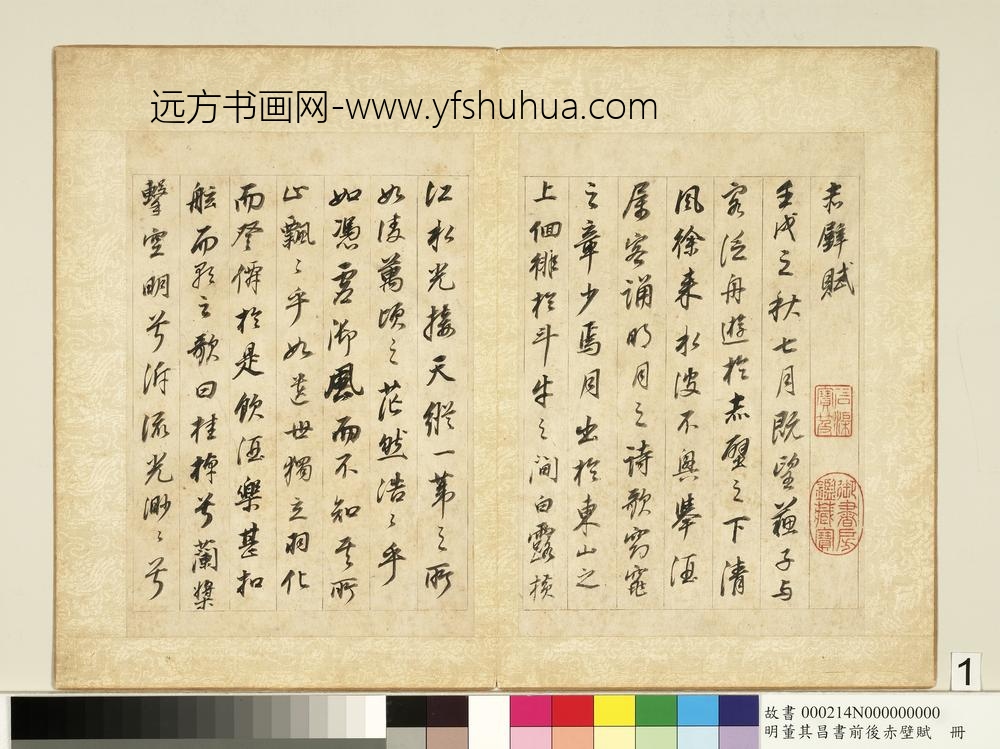 远方书画网-www.yfshuhua.com
赤壁賦
壬戌之秋七月既望蘇子与
客泛舟遊於赤壁之下清
風徐来水波不興舉酒
屬客誦明月之詩歌窈窕
之章少焉月出於東山之
上徊徘於斗牛之間白露横
江水光接天縱一葦之所
如凌萬頃之茫然浩〻乎
如馮虛御風而不知其所
止飄〻乎如遺世獨立羽化
而登僊於是飲酒樂甚扣
舷而歌之歌曰桂棹兮蘭槳
擊空明兮泝流光渺〻兮
御書房鑑藏寶
1
故書 000214N000000000
明董其昌書前後赤壁賦 冊